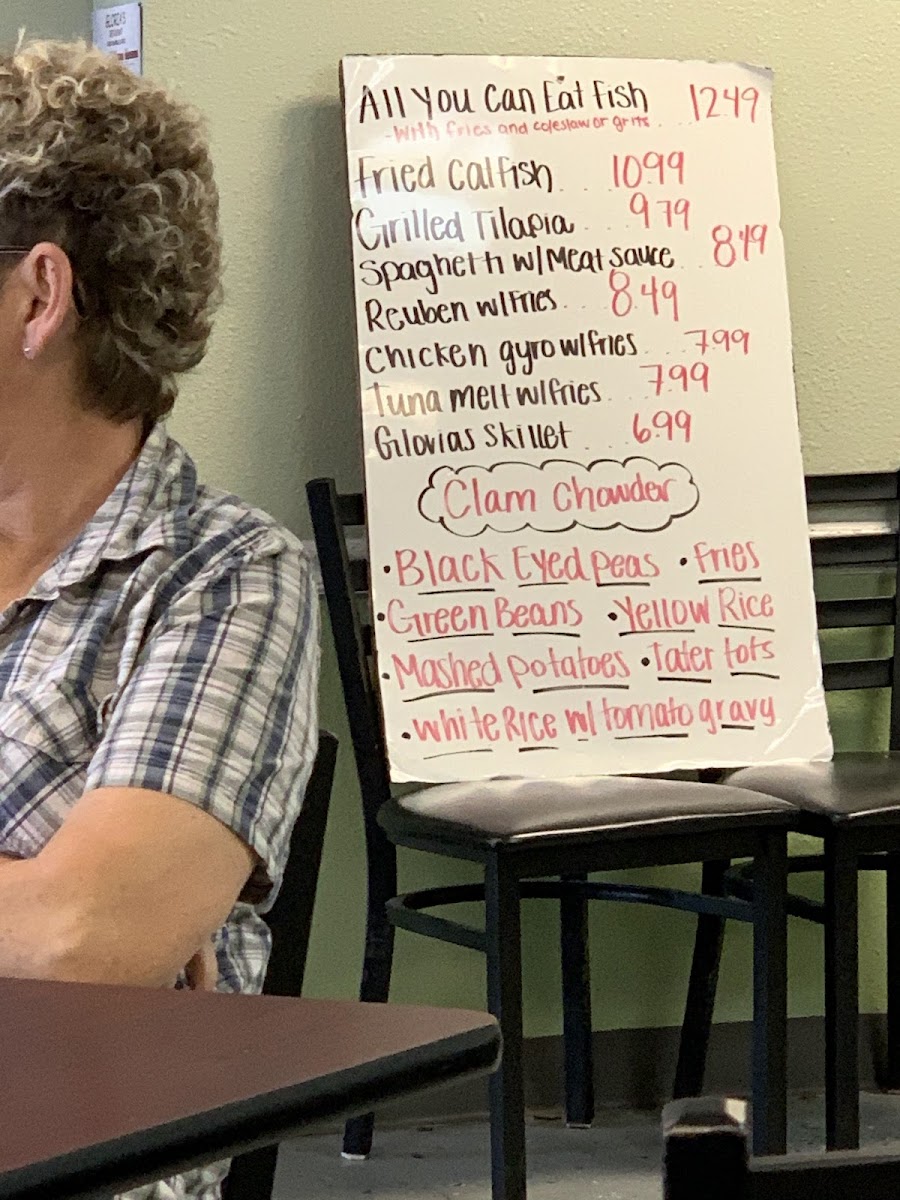 All You Can Eat Fish 1249
-With fries and coleslaw or grits...
Fried Catfish... 1099
Grilled Tilapia... 979
Spaghetti w/Meat sauce.. 849
Reuben w/Fries... 8.49
Chicken gyro w/fries... 799
Tuna melt w/fries... 799
Glorias Skillet.... 699
Clam Chowder
• Black Eyed Peas • Fries
• Green Beans • Yellow Rice
• Mashed Potatoes • Tater tots
• White Rice w/ tomato gravy